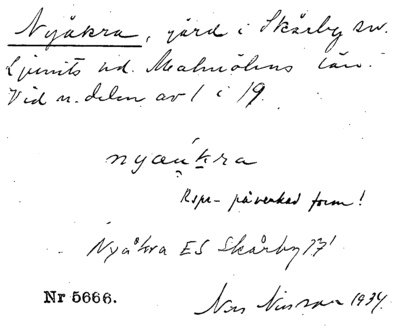 Nyåkra, gård i Skårby sn.
Ljunits hd. Malmöhus län.
Vid n. delen av 1 i 19.
nyaŭkra
Rspr-påverkad form!
Nyåkra ES Skårby 17¹
Nr 5666.
1934.